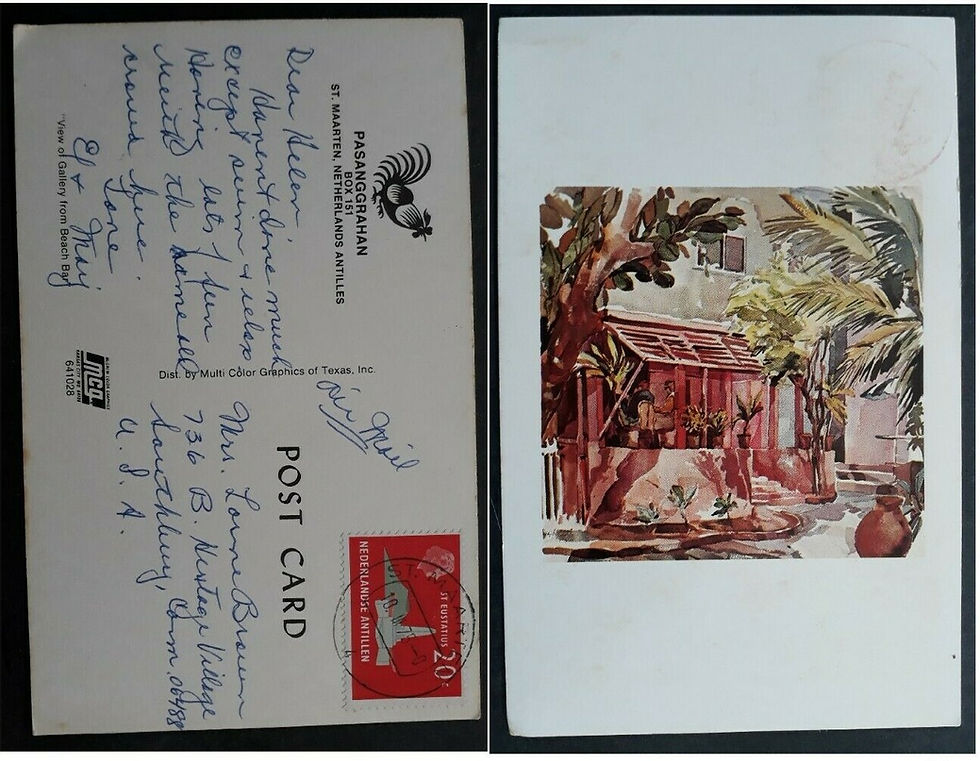 PASANGGRAHAN
BOX 151
ST. MAARTEN, NETHERLANDS ANTILLES
Dear Helen
Havent done much
except swim & relax
Having lots of fun
with the same old
crowd here.
Love
Ef & Marj
"View of Gallery from Beach Bar
Dist. by Multi Color Graphics of Texas, Inc.
mcg
641028
POST CARD
Air Mail
Mrs. Lorne Brown
736 B. Heritage Village
Southbury, Conn. 06488
U. S. A.
ST EUSTATIUS
20c
NEDERLANDSE ANTILLEN